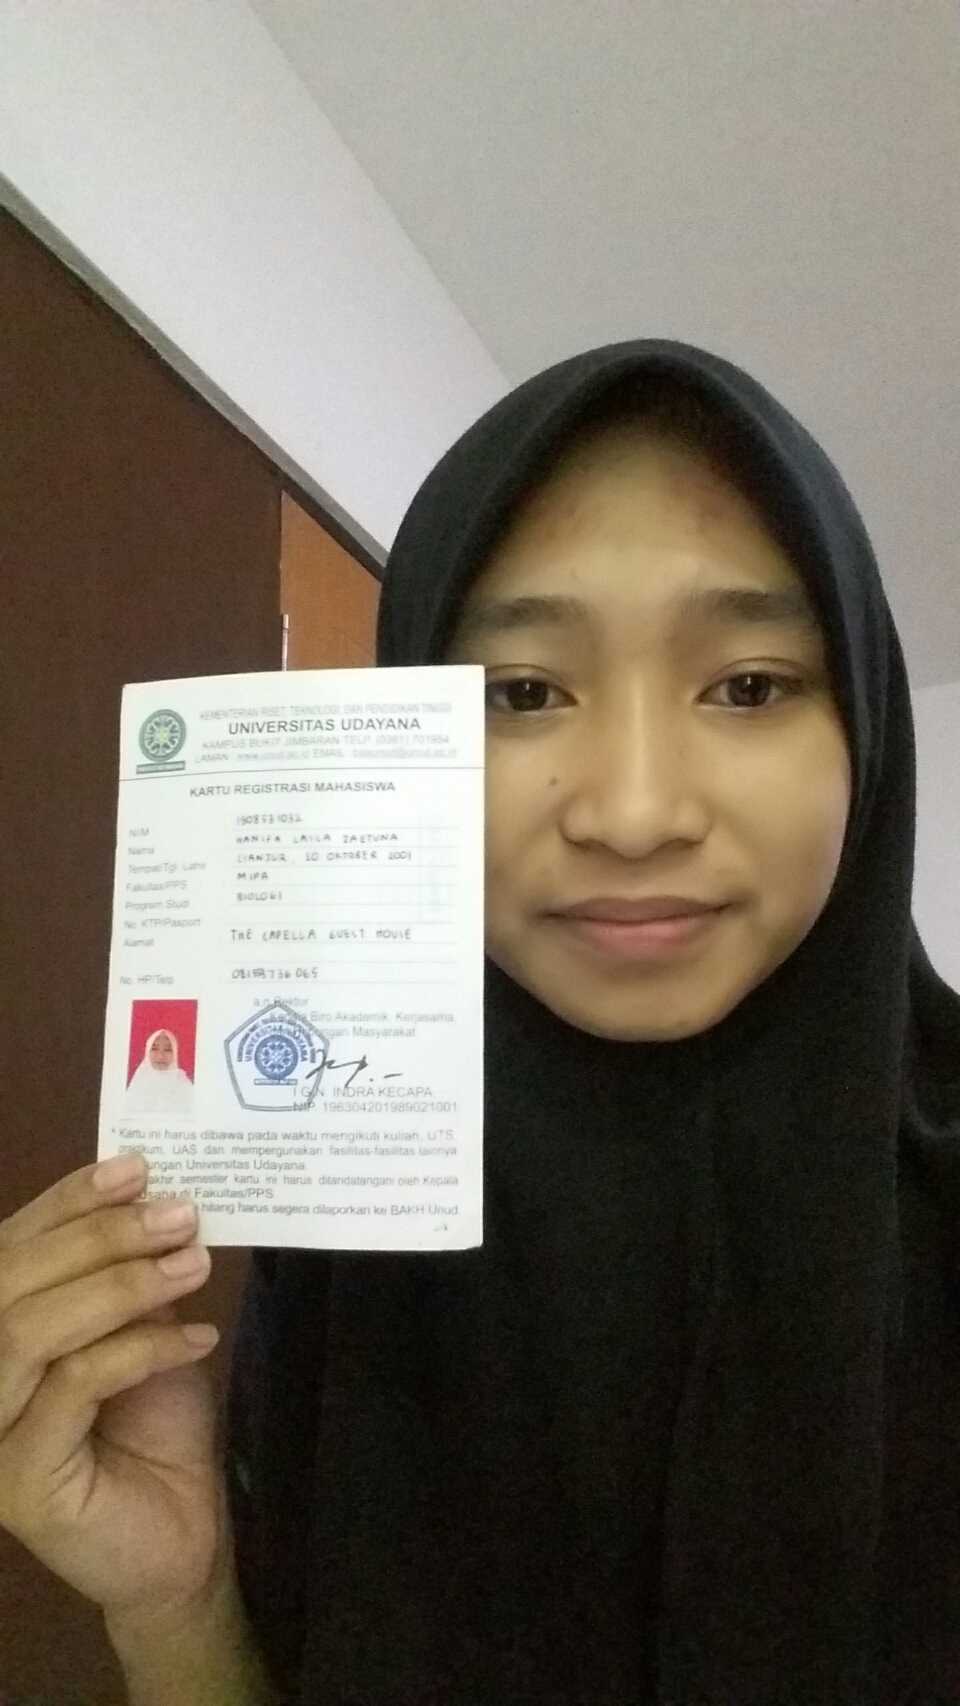 KEMENTERIAN RISET, TEKNOLOGI, DAN PENDIDIKAN TINGGI
UNIVERSITAS UDAYANA
KAMPUS BUKIT JIMBARAN TELP. (0361) 701954
LAMAN : www.unud.ac.id EMAIL :
KARTU REGISTRASI MAHASISWA
NIM 1908531032
Nama HANIFA LAILA ZAETUNA
Tempat/Tgl. Lahir CIANJUR, 20 OKTOBER 2001
Fakultas/PPS MIPA
Program Studi BIOLOGI
No. KTP/Pasport
Alamat THE CAPELLA GUEST HOUSE
No. HP/Telp
a.n Rektor
Biro Akademik, Kerjasama,
Masyarakat
UNIVERSITAS UDAYANA
I G.N. INDRA KECAPA
NIP. 196304201989021001
* Kartu ini harus dibawa pada waktu mengikuti kuliah, UTS,
praktikum, UAS dan mempergunakan fasilitas-fasilitas lainnya
Universitas Udayana.
akhir semester kartu ini harus ditandatangani oleh Kepala
di Fakultas/PPS
hilang harus segera dilaporkan ke BAKH Unud